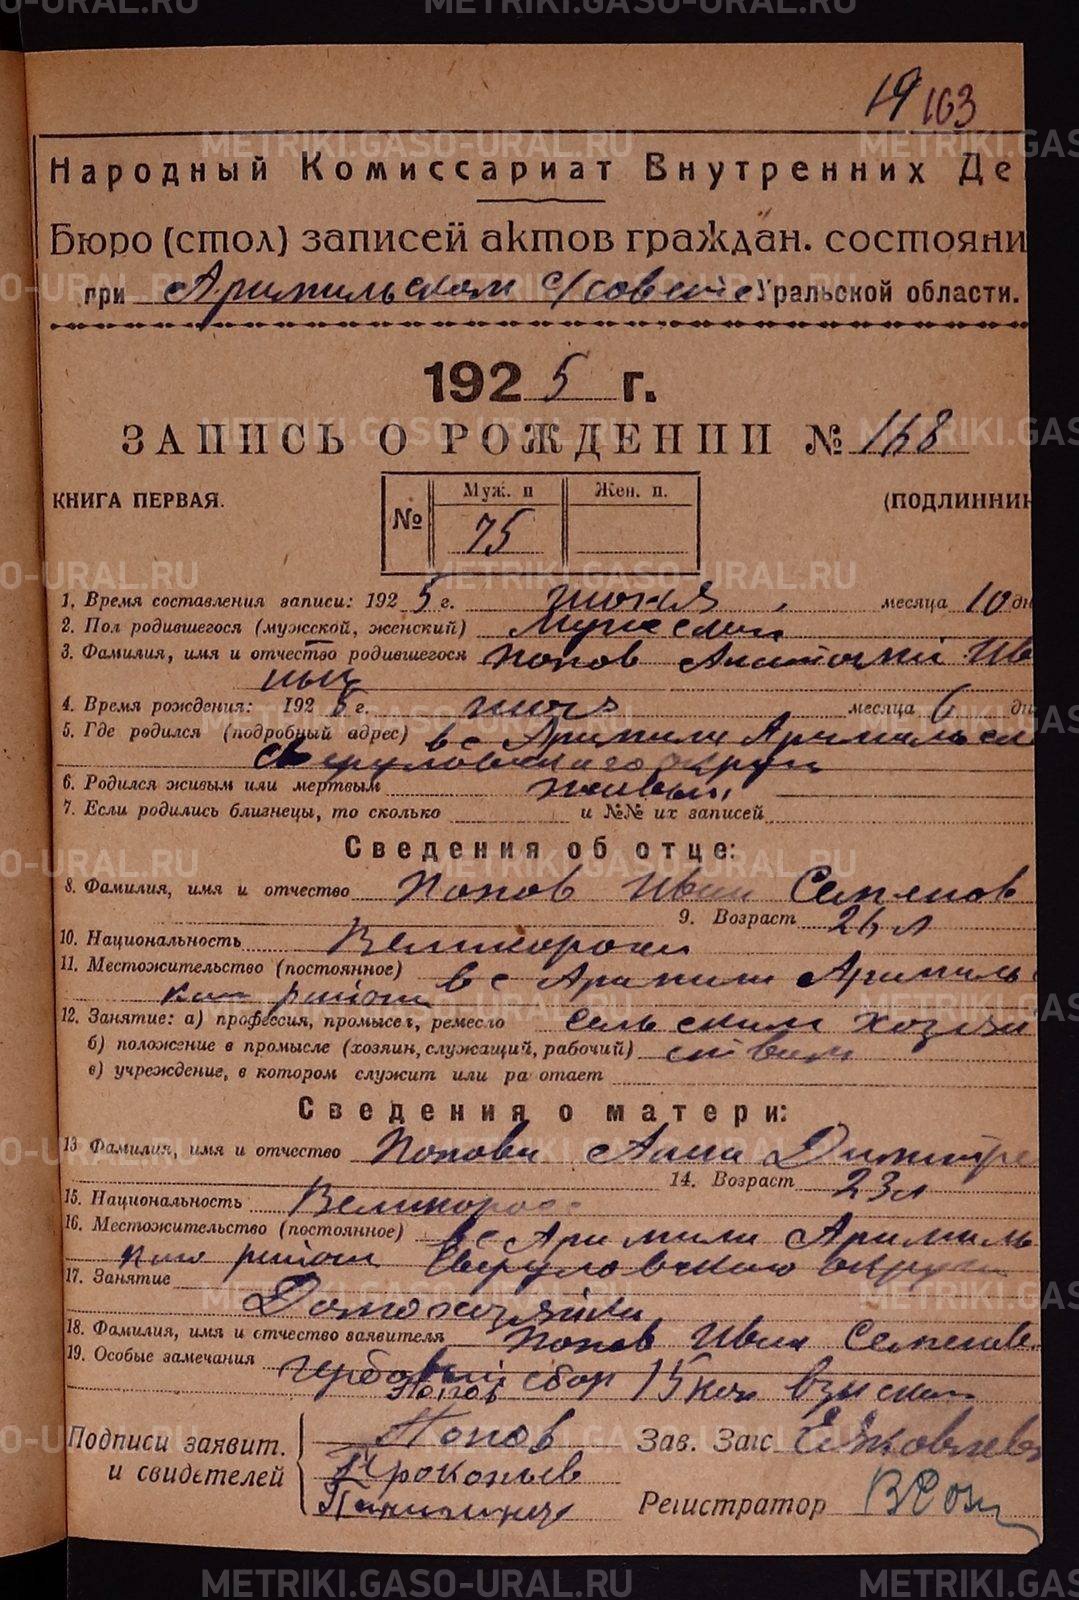 METRIKI.GASO-URAL.RU
19 163
Народный Комиссариат Внутренних Де
Бюро (стол) записей актов граждан. состояни
при Арамильском с/совете Уральской области.
1925 г.
ЗАПИСЬ О РОЖДЕНИИ № 158
КНИГА ПЕРВАЯ.
(ПОДЛИННИК
№ Муж. п Жен. п.
75
1. Время составления записи: 1925 г. июня месяца 10 дн
2. Пол родившегося (мужской, женский) Мужской
3. Фамилия, имя и отчество родившегося Попов Анатолий Ив
ныч
4. Время рождения: 1925 г. июня месяца 6 дн
5. Где родился (подробный адрес) в с Арамили Арамильск
Свердловского округа
6. Родился живым или мертвым живым
7. Если родились близнецы, то сколько и №№ их записей
Сведения об отце:
8. Фамилия, имя и отчество Попов Иван Семенов
9. Возраст 25 л
10. Национальность Великоросс
11. Местожительство (постоянное) в с Арамили Арамиль
ком районе
12. Занятие: а) профессия, промысел, ремесло сельским хозяй
б) положение в промысле (хозяин, служащий, рабочий) ством
в) учреждение, в котором служит или ра отает
Сведения о матери:
13 Фамилия, имя и отчество Попова Анна Димитре
14. Возраст 23 л
15. Национальность Великоросс
16. Местожительство (постоянное) в с Арамили Арамиль
ком районе Свердловского округа
17. Занятие
Домохозяйка
18. Фамилия, имя и отчество заявителя Попов Иван Семенов
19. Особые замечания гербовый сбор 15 коп взыскан
Попов
Подписи заявит. и свидетелей
Попов
Прокопьев
Зав. Загс Яковлев
Регистратор